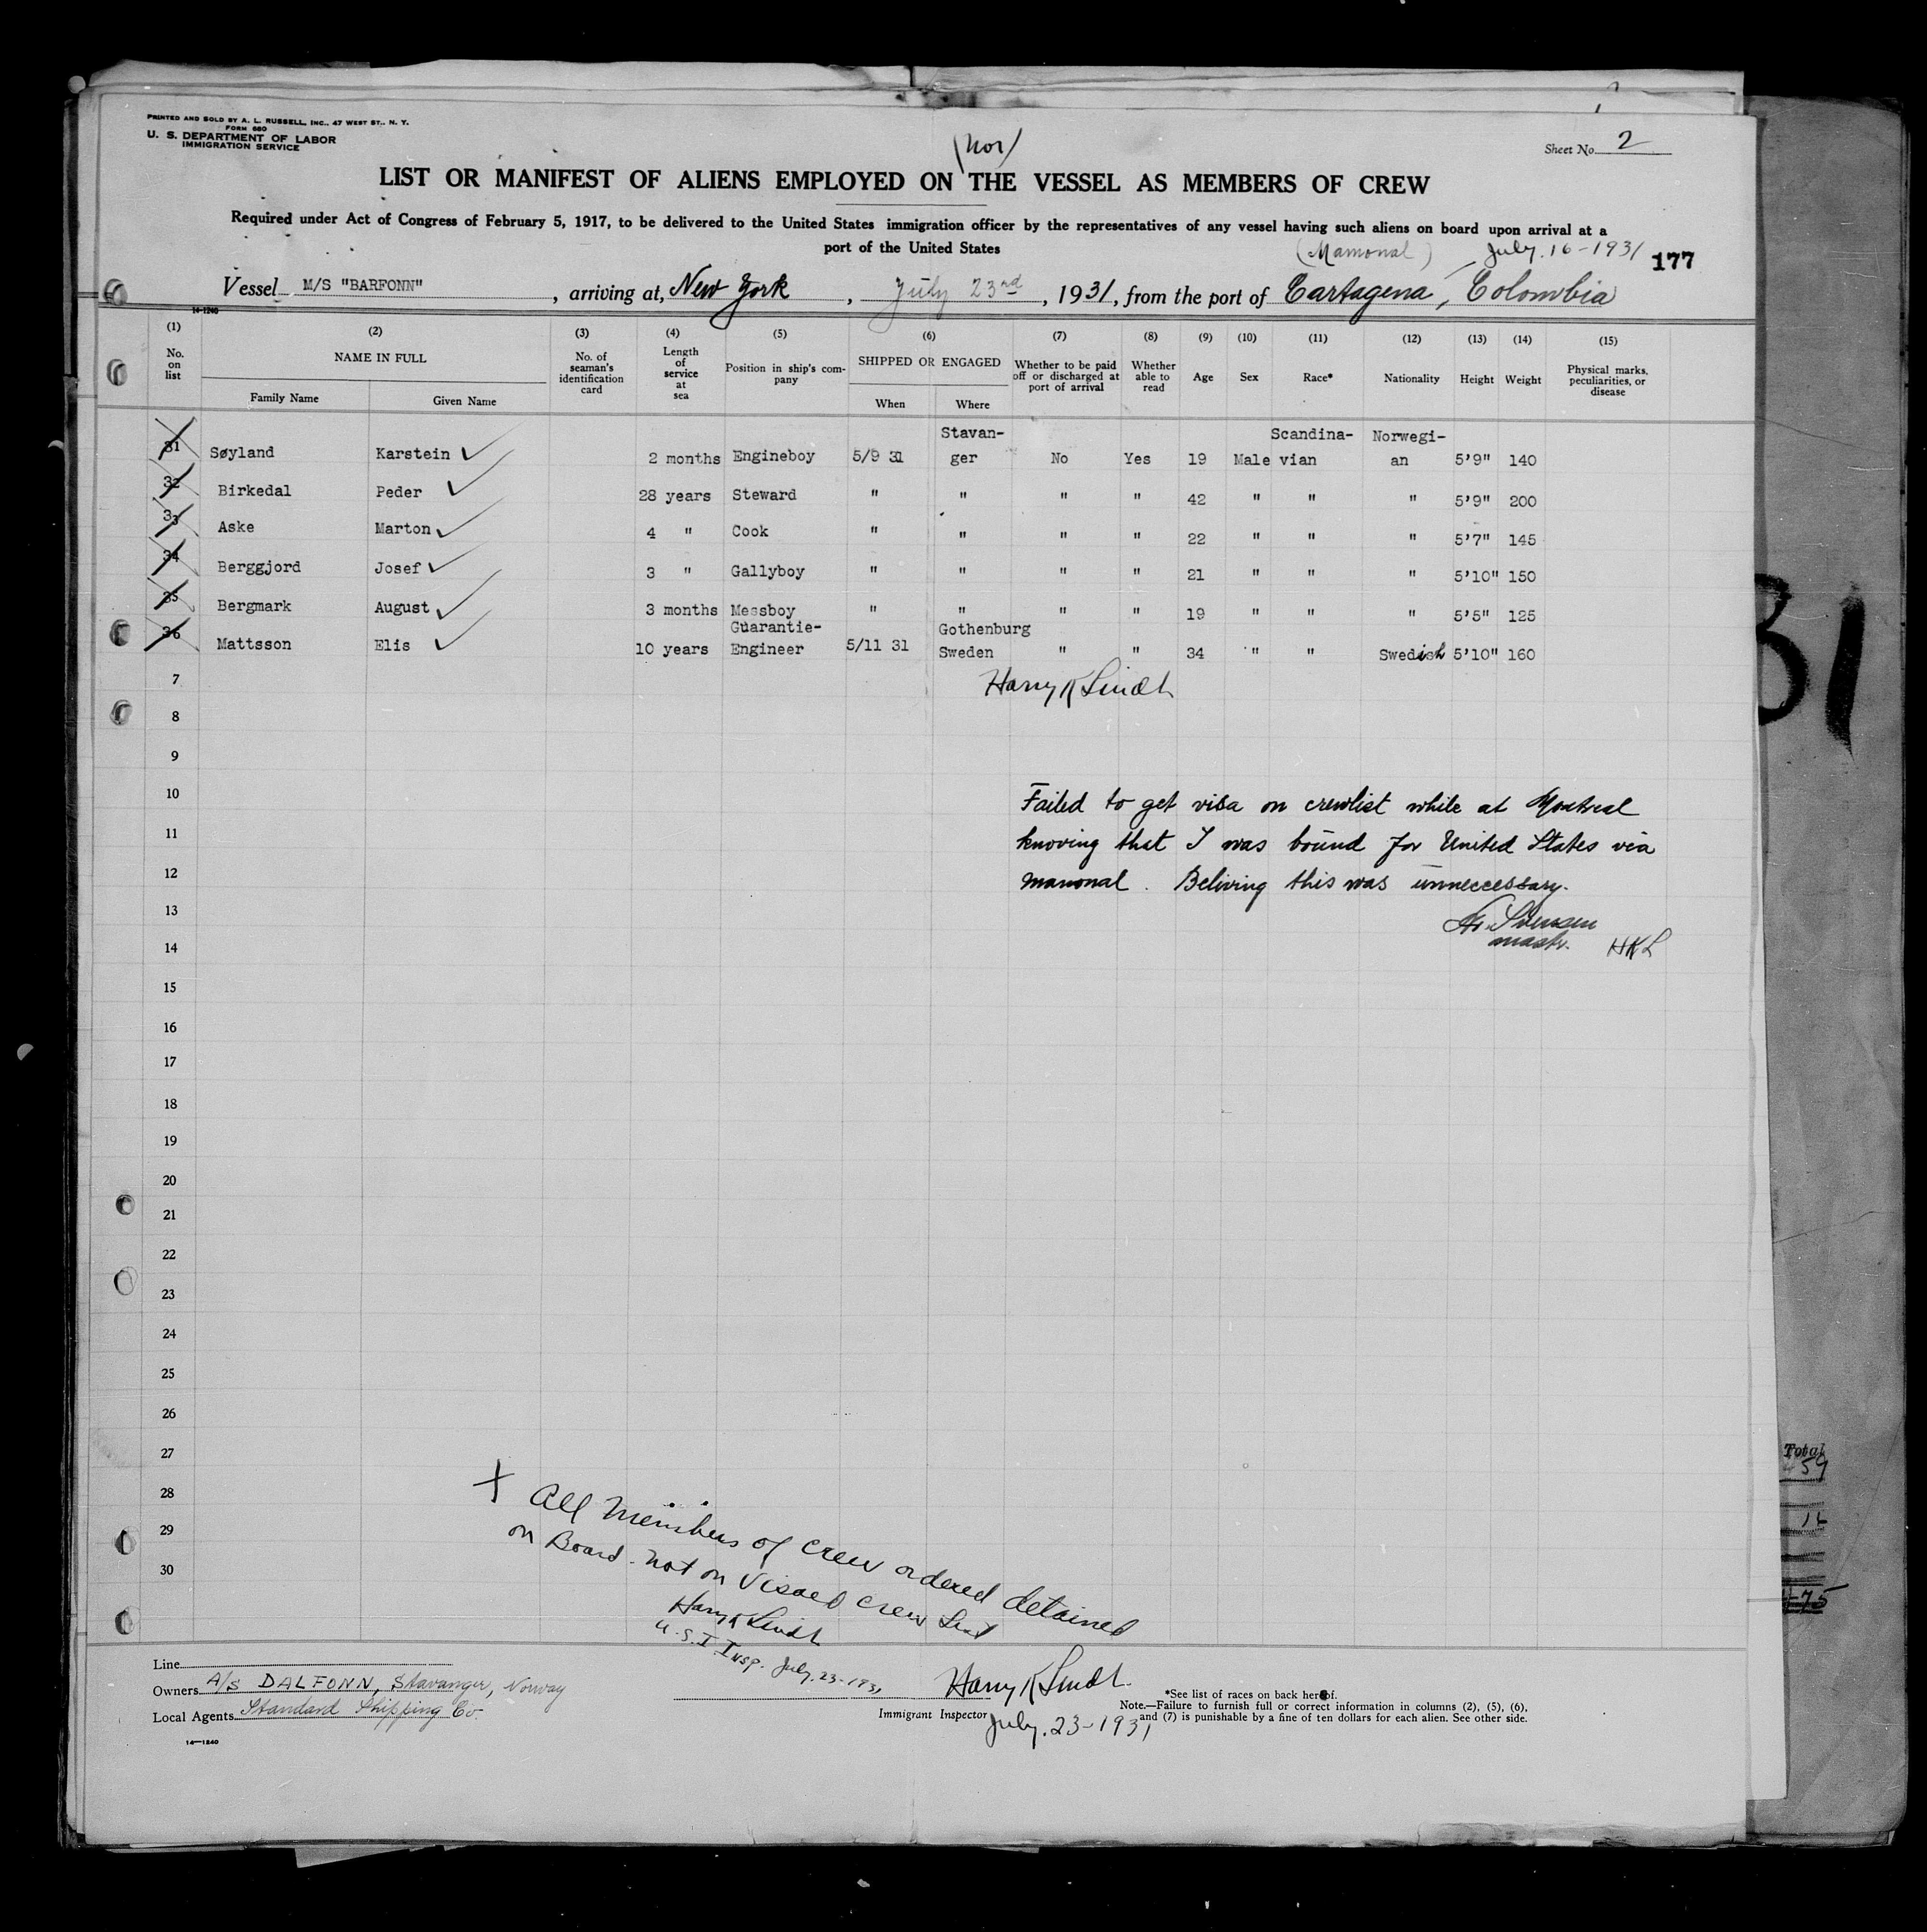 PRINTED AND SOLD BY A. L. RUSSELL, INC., 47 WEST ST., N. Y.
FORM 680
U. S. DEPARTMENT OF LABOR
IMMIGRATION SERVICE
(Nor)
Sheet No. 2
LIST OR MANIFEST OF ALIENS EMPLOYED ON THE VESSEL AS MEMBERS OF CREW
Required under Act of Congress of February 5, 1917, to be delivered to the United States immigration officer by the representatives of any vessel having such aliens on board upon arrival at a
port of the United States
(Mamonal) July. 16-1931 177
Vessel M/S "BARFONN", arriving at, New York, July 23rd, 1931, from the port of Cartagena, Colombia
14-1240
(1) (2) (3) (4) (5) (6) (7) (8) (9) (10) (11) (12) (13) (14) (15)
No. on list NAME IN FULL No. of seaman's identification card Length of service at sea Position in ship's company SHIPPED OR ENGAGED Whether to be paid off or discharged at port of arrival Whether able to read Age Sex Race* Nationality Height Weight Physical marks, peculiarities, or disease
Family Name Given Name When Where
Stavan- Scandina- Norwegi-
31 Søyland Karstein 2 months Engineboy 5/9 31 ger No Yes 19 Male vian an 5'9" 140
32 Birkedal Peder 28 years Steward " " " " 42 " " " 5'9" 200
33 Aske Marton 4 " Cook " " " " 22 " " " 5'7" 145
34 Berggjord Josef 3 " Gallyboy " " " " 21 " " " 5'10" 150
35 Bergmark August 3 months Messboy " " " " 19 " " " 5'5" 125
Guarantie- Gothenburg
36 Mattsson Elis 10 years Engineer 5/11 31 Sweden " " 34 " " Swedish 5'10" 160
7 Harry K Lindt
8
9
10 Failed to get visa on crewlist while at Montreal
11 knoving that I was bound for United States via
12 Mamonal. Beliving this was unneccessary.
13
14 mastr. HKL
15
16
17
18
19
20
21
22
23
24
25
26
27
28
29
30
X All Members of Crew ordered detained
on Board - not on Visaed Crew List
Harry K Lindt
U.S.I Insp. July. 23-1931
Line
Owners A/S DALFONN, Stavanger, Norway
Local Agents Standard Shipping Co.
Harry K Lindt.
Immigrant Inspector
July. 23-1931
*See list of races on back hereof.
Note.—Failure to furnish full or correct information in columns (2), (5), (6),
and (7) is punishable by a fine of ten dollars for each alien. See other side.
14—1240
31
Total
459
12
475